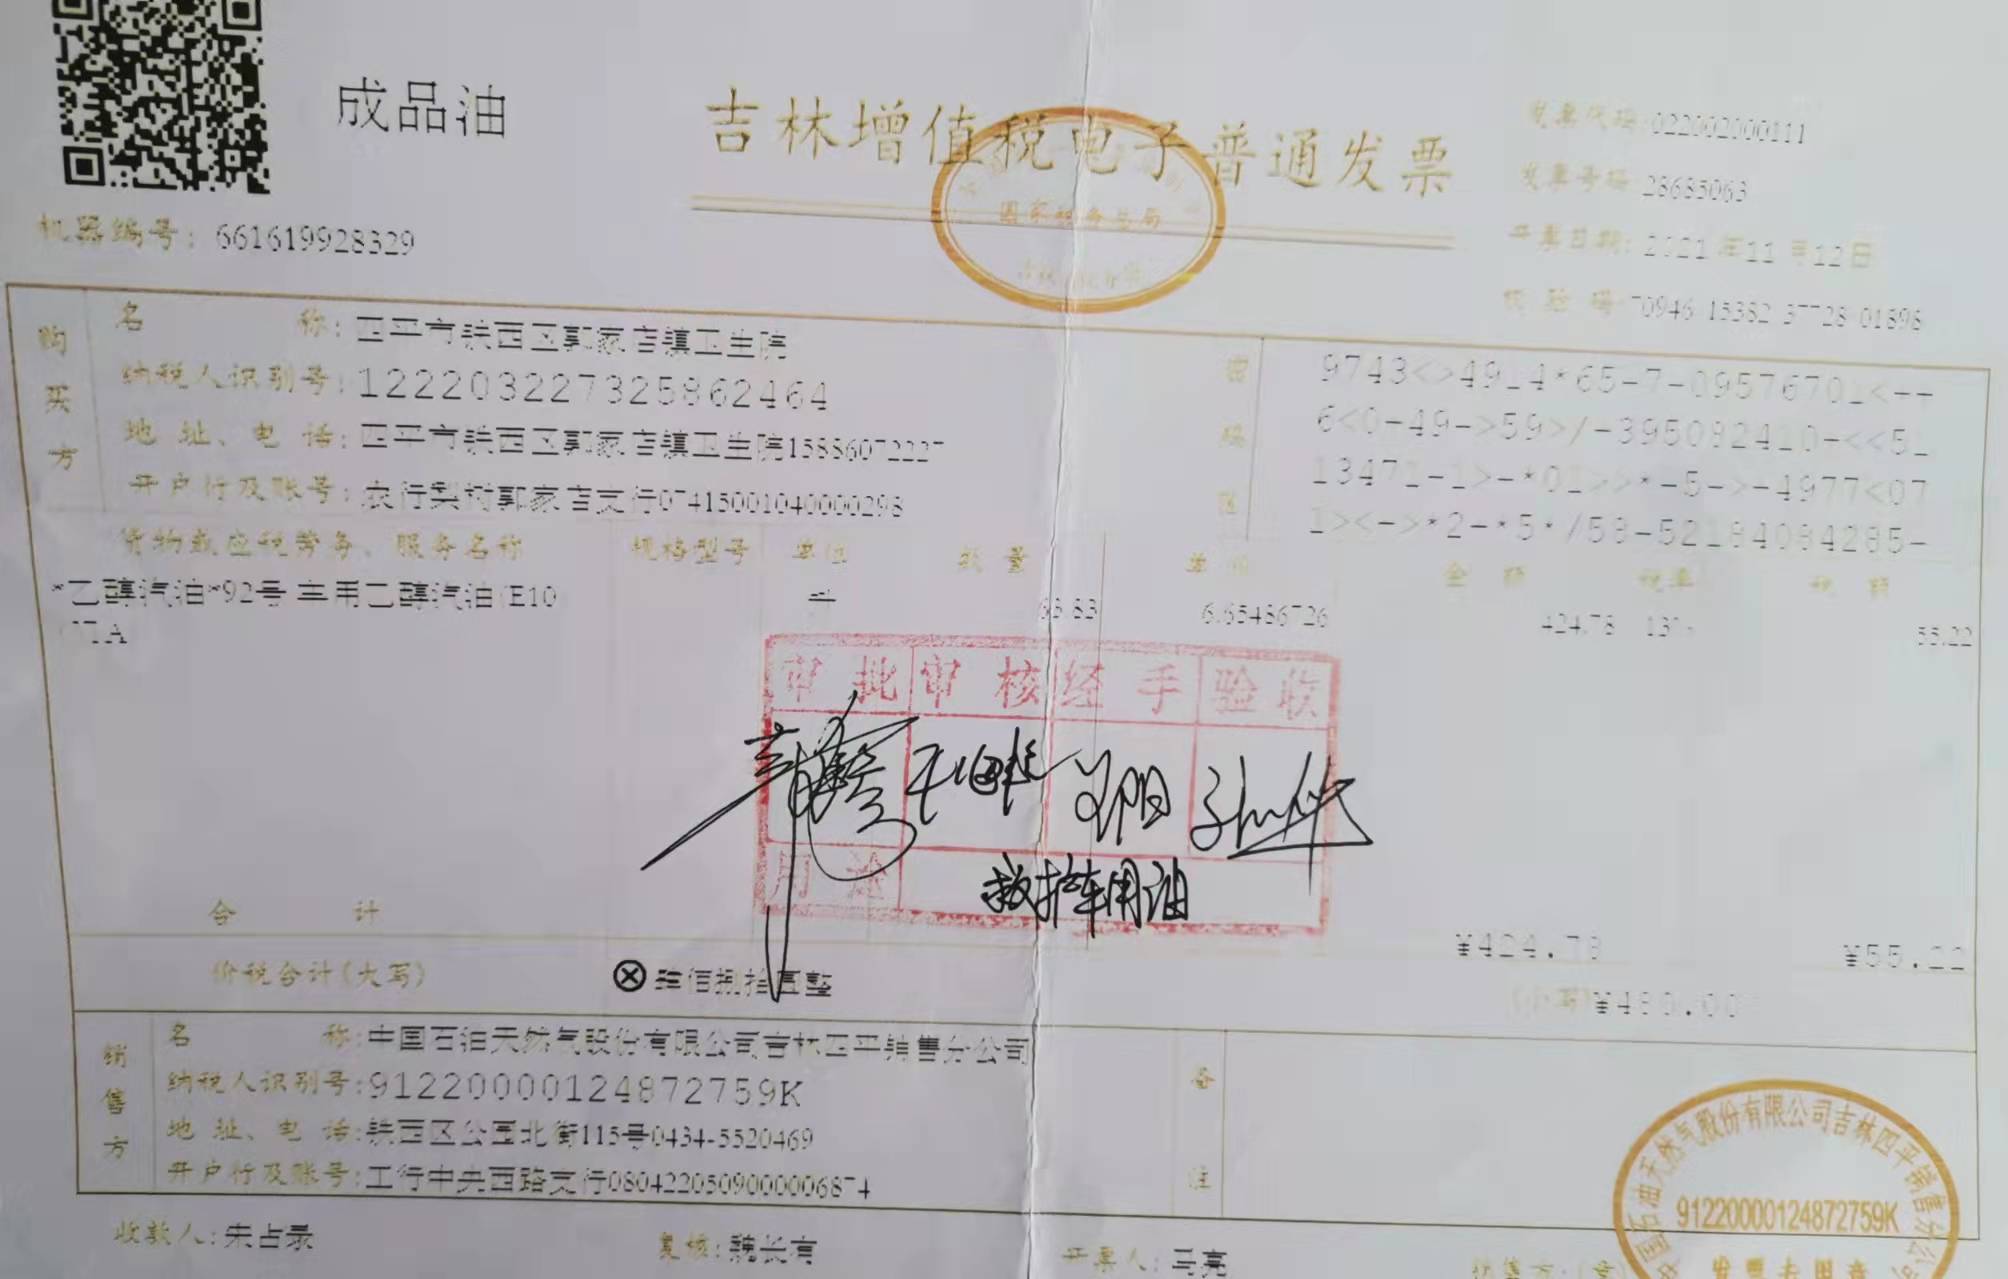 成品油
吉林增值税电子普通发票
国家税务总局
发票代码:022002000111
发票号码:28685063
开票日期:2021年11月12日
校验码:70946 15382 37728 01898
机器编号:661619928329
购买方
名称:四平市铁西区郭家店镇卫生院
纳税人识别号:122203227325862464
地址、电话:四平市铁西区郭家店镇卫生院15886072227
开户行及账号:农行梨树郭家店支行07415001040000298
密码区
9743<>4914*65-7-09576701<--
6<0-49->59>/-395092410-<<51
13471-1>-*01>>*-5->-4977<07
1><->*2-*5*/58-52184084285-
货物或应税劳务、服务名称 规格型号 单位 数量 单价 金额 税率 税额
*乙醇汽油*92号 车用乙醇汽油(E10 升 63.83 6.65486726 424.78 13% 55.22
审批 审核 经手 验收
用途 救护车用油
合计 ¥424.78 ¥55.22
价税合计(大写) ⊗肆佰捌拾圆整 (小写)¥480.00
销售方
名称:中国石油天然气股份有限公司吉林四平销售分公司
纳税人识别号:91220000124872759K
地址、电话:铁西区公园北街115号0434-5520469
开户行及账号:工行中央西路支行0804220509000006874
备注
收款人:朱占录 复核:魏长有 开票人:马亮 销售方:(章)
中国石油天然气股份有限公司吉林四平销售分公司
91220000124872759K
发票专用章